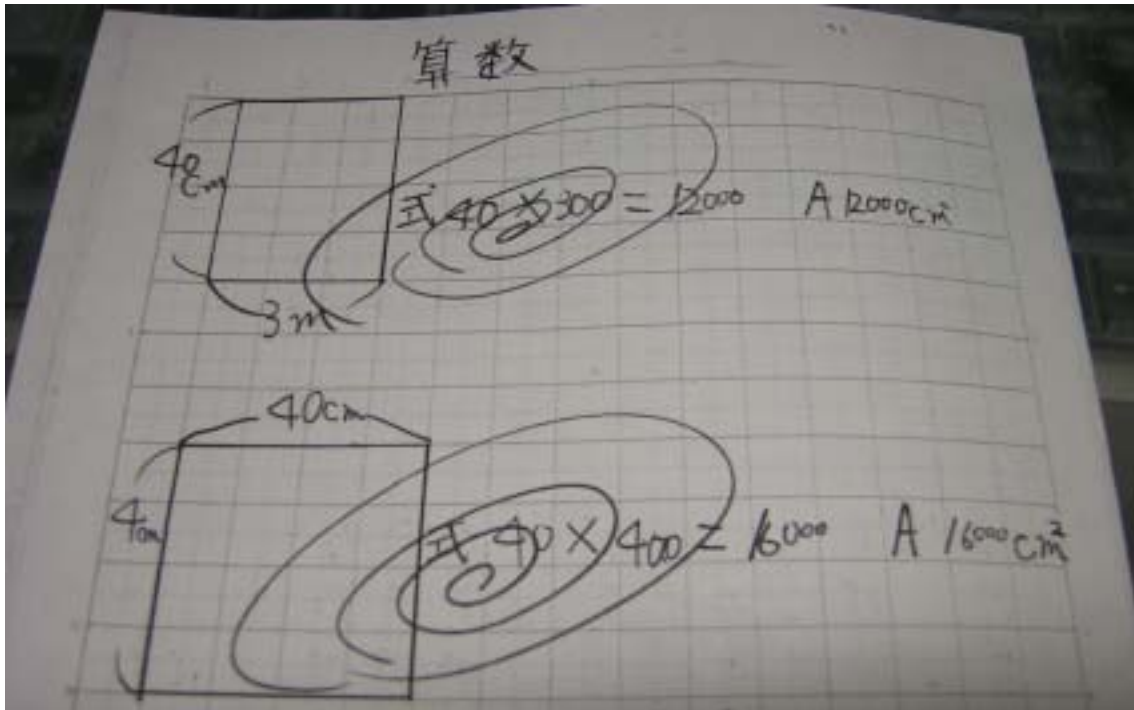 算数
40cm
式 40×300=12000 A 12000cm²
3m
40cm
式 40×400=16000 A 16000cm²